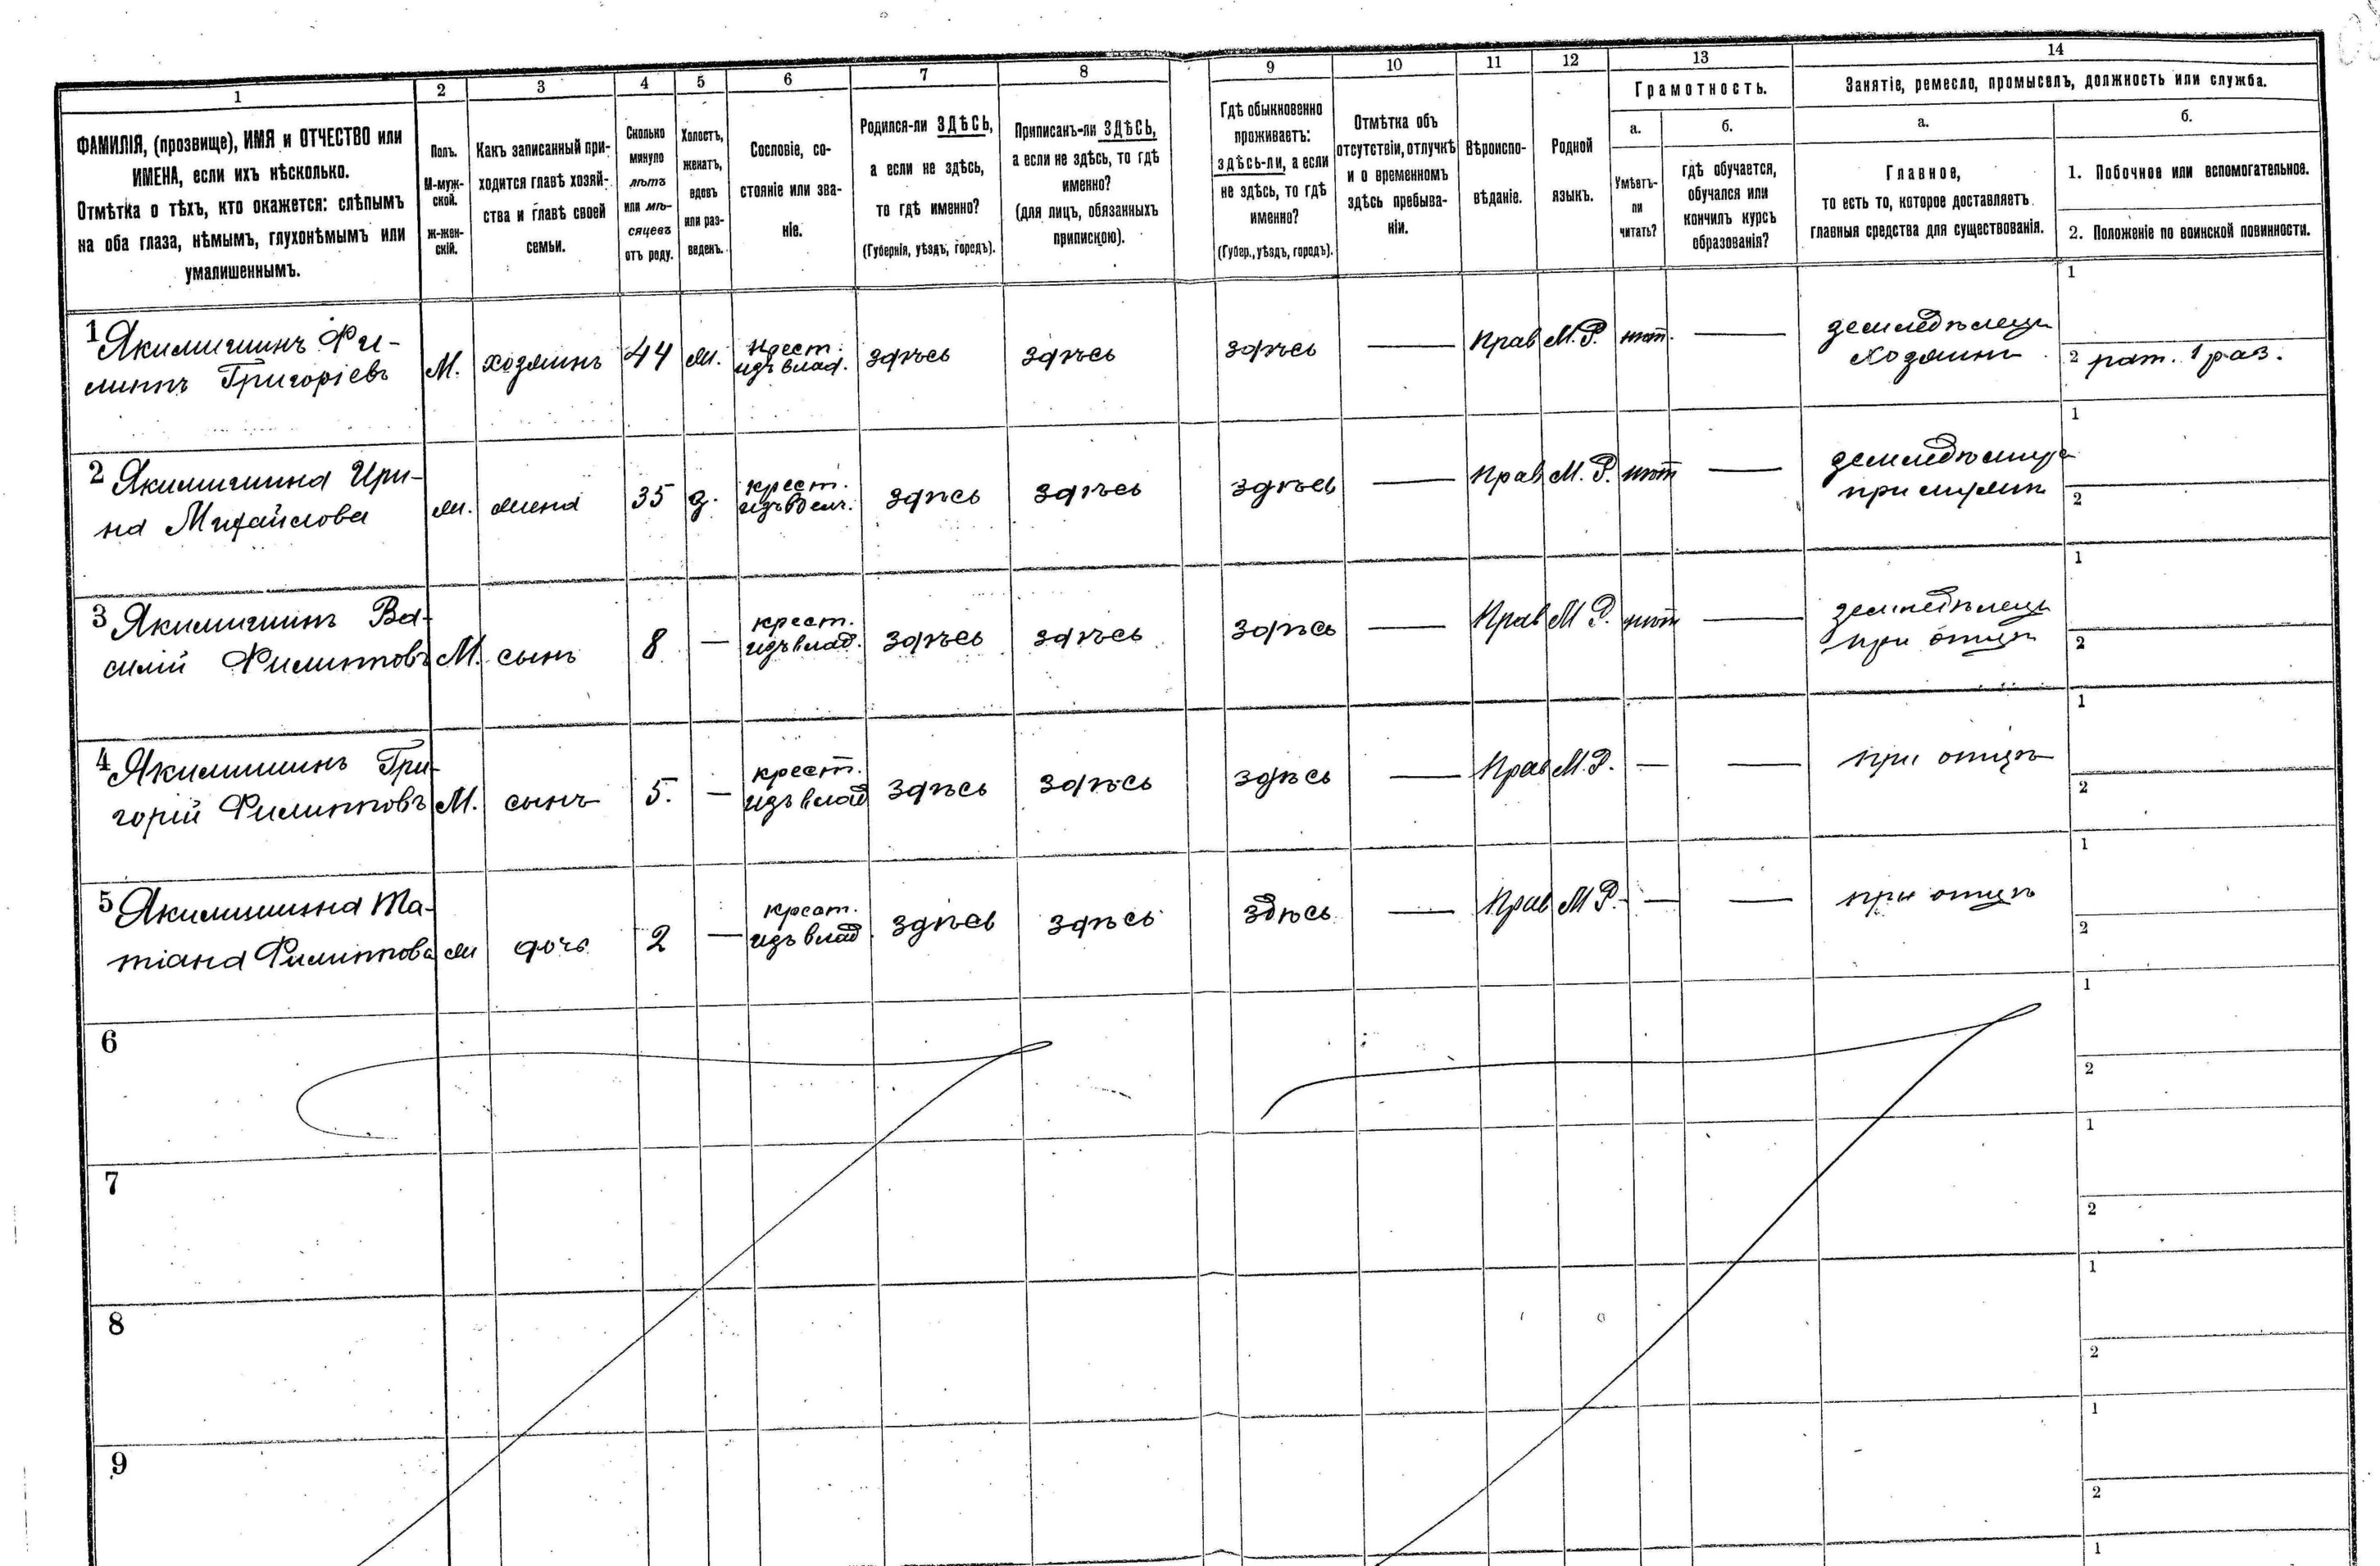 1
2
3
4
5
6
7
8
9
10
11
12
13
14
ФАМИЛІЯ, (прозвище), ИМЯ и ОТЧЕСТВО или
ИМЕНА, если ихъ нѣсколько.
Отмѣтка о тѣхъ, кто окажется: слѣпымъ
на оба глаза, нѣмымъ, глухонѣмымъ или
умалишеннымъ.
Полъ.
М-муж-
ской.
ж-жен-
скій.
Какъ записанный при-
ходится главѣ хозяй-
ства и главѣ своей
семьи.
Сколько
минуло
лѣтъ
или мѣ-
сяцевъ
отъ роду.
Холостъ,
женатъ,
вдовъ
или раз-
веденъ.
Сословіе, со-
стояніе или зва-
ніе.
Родился-ли ЗДѢСЬ,
а если не здѣсь,
то гдѣ именно?
(Губернія, уѣздъ, городъ).
Приписанъ-ли ЗДѢСЬ,
а если не здѣсь, то гдѣ
именно?
(для лицъ, обязанныхъ
припискою).
Гдѣ обыкновенно
проживаетъ:
здѣсь-ли, а если
не здѣсь, то гдѣ
именно?
(Губер., уѣздъ, городъ).
Отмѣтка объ
отсутствіи, отлучкѣ
и о временномъ
здѣсь пребыва-
ніи.
Вѣроиспо-
вѣданіе.
Родной
языкъ.
Грамотность.
а.
Умѣетъ-
ли
читать?
б.
гдѣ обучается,
обучался или
кончилъ курсъ
образованія?
Занятіе, ремесло, промыселъ, должность или служба.
а.
Главное,
то есть то, которое доставляетъ
главныя средства для существованія.
б.
1. Побочное или вспомогательное.
2. Положеніе по воинской повинности.
1 Якимишинъ Фи-
липпъ Григоріевъ
М.
хозяинъ
44
ж.
крест.
изъ влад.
здѣсь
здѣсь
здѣсь
—
Прав
М. Р.
нѣт.
—
земледѣлецъ
хозяинъ
1
2 рат. 1 раз.
2 Якимишина Ири-
на Михайлова
ж.
жена
35
з.
крест.
здѣсь
здѣсь
здѣсь
—
Прав
М. Р.
нѣт
—
при мужѣ
1
2
3 Якимишинъ Ва-
силій Филипповъ
М.
сынъ
8
—
крест.
изъ влад.
здѣсь
здѣсь
здѣсь
—
Прав
М Р.
нѣт
—
земледѣлецъ
при отцѣ
1
2
4 Якимишинъ Гри-
горій Филипповъ
М.
сынъ
5.
—
крест.
изъ влад
здѣсь
здѣсь
здѣсь
—
Прав
М. Р.
—
—
при отцѣ
1
2
5 Якимишина Та-
тіана Филиппова
ж
дочь
2
—
крест.
изъ влад.
здѣсь
здѣсь
здѣсь
—
Прав
М Р.
—
—
при отцѣ
1
2
6
1
2
7
1
2
8
1
2
9
1
2
1